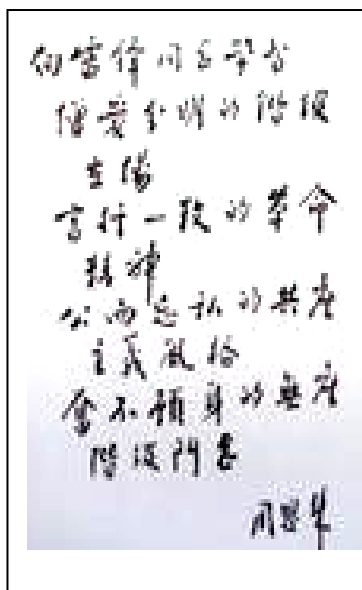 向雷锋同志学习
憎爱分明的阶级
立場
言行一致的革命
精神
公而忘私的共产
主義風格
奮不顧身的無产
階级鬥志
周恩来